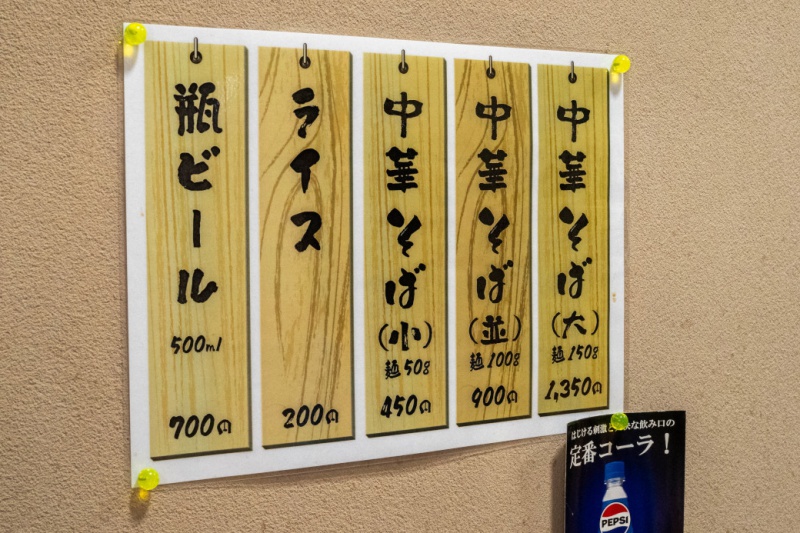 中華そば(大)
麺150g
1,350円
中華そば(並)
麺100g
900円
中華そば(小)
麺50g
450円
ライス
200円
瓶ビール
500ml
700円
はじける刺激と
な飲み口の
定番コーラ！
PEPSI